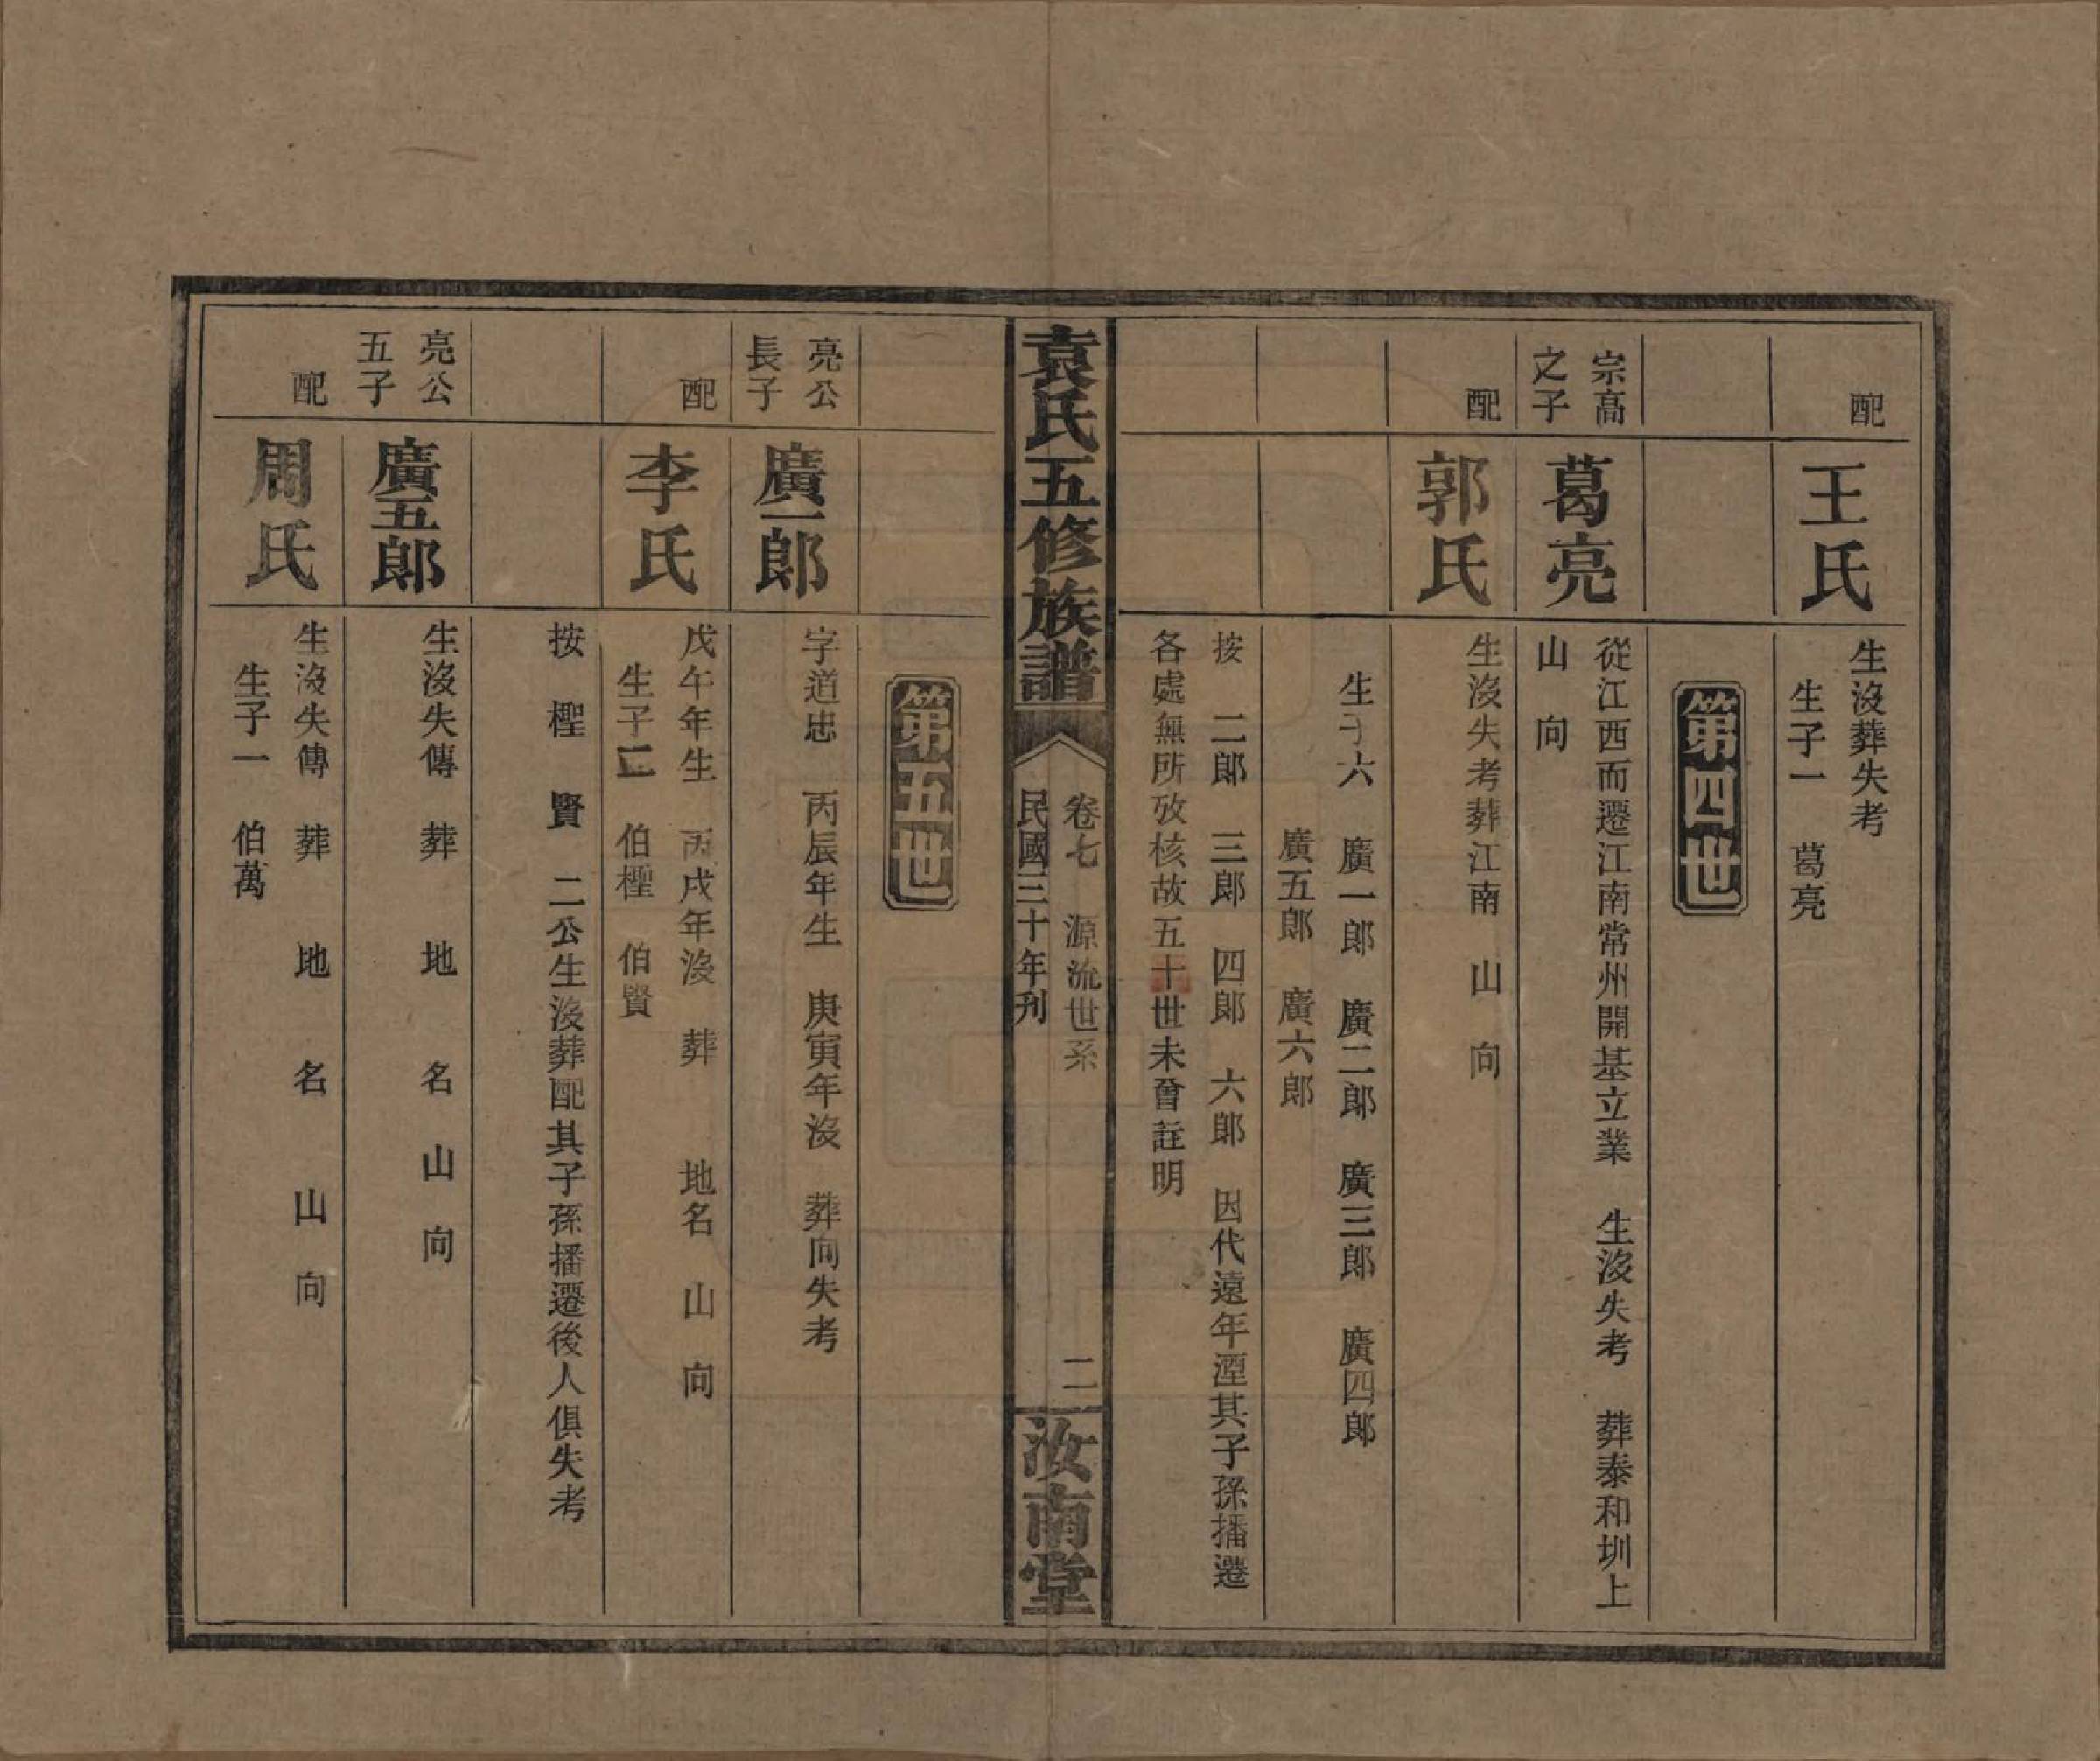 配
王氏
生沒葬失考
生子一　葛亮
第四世
宗高
之子
葛亮
從江西而遷江南常州開基立業　生沒失考　葬泰和圳上
山　向
配
郭氏
生沒失考葬江南　山　向
生子六　廣一郎　廣二郎　廣三郎　廣四郎
廣五郎　廣六郎
按　二郎　三郎　四郎　六郎　因代遠年湮其子孫播遷
各處無所攷核故五十世未曾註明
袁氏五修族譜
卷七　源流世系
民國三十年刋
二
汝南堂
第五世
亮公
長子
廣一郎
字道忠　丙辰年生　庚寅年沒　葬向失考
配
李氏
戊午年生　丙戌年沒　葬　地名　山　向
生子二　伯檉　伯賢
按　檉　賢　二公生沒葬配其子孫播遷後人俱失考
亮公
五子
廣五郎
生沒失傳　葬　地　名　山　向
配
周氏
生沒失傳　葬　地　名　山　向
生子一　伯萬